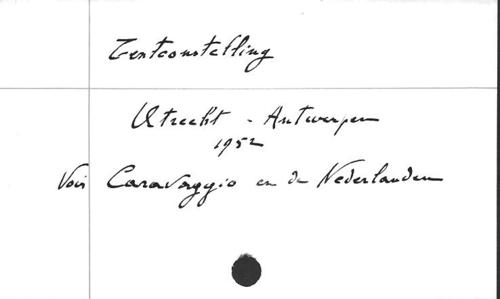 Tentoonstelling
Utrecht - Antwerpen
1952
Voir Caravaggio en de Nederlanden